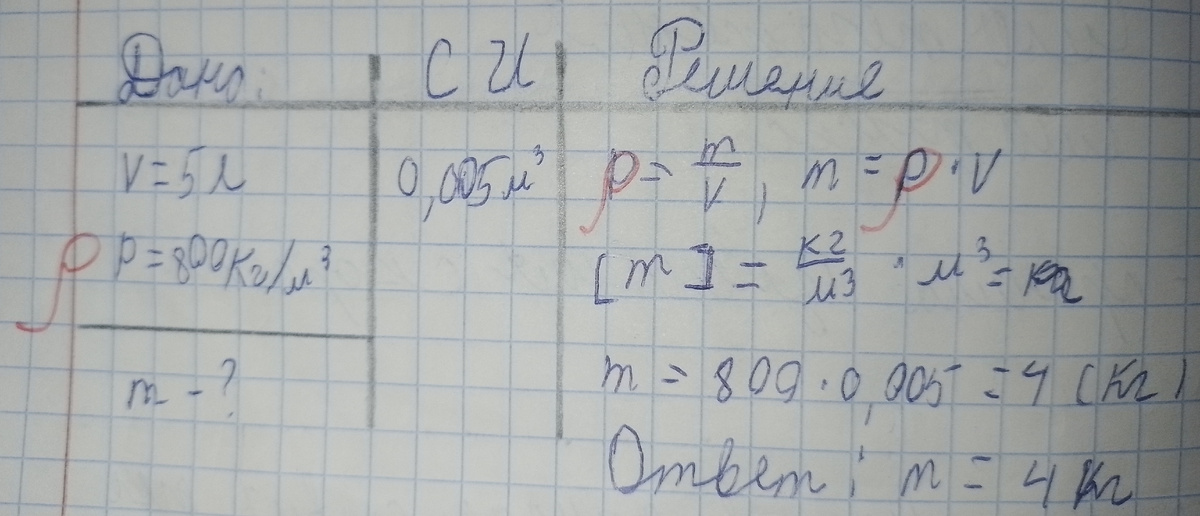 Дано: СИ Решение
V=5л 0,005м³ ρ = m/V, m = ρ·V
ρ p=800кг/м³ [m] = кг/м³ · м³ = кг
m - ? m = 800·0,005 = 4 (кг)
Ответ: m = 4 кг